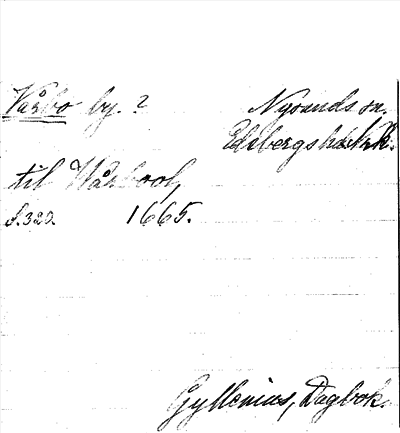 Vårbo by. ? Nysunds sn.
Edsbergs hd. Nk.
til Wårbool,
S. 320. 1665.
Gyllenius, Dagbok.